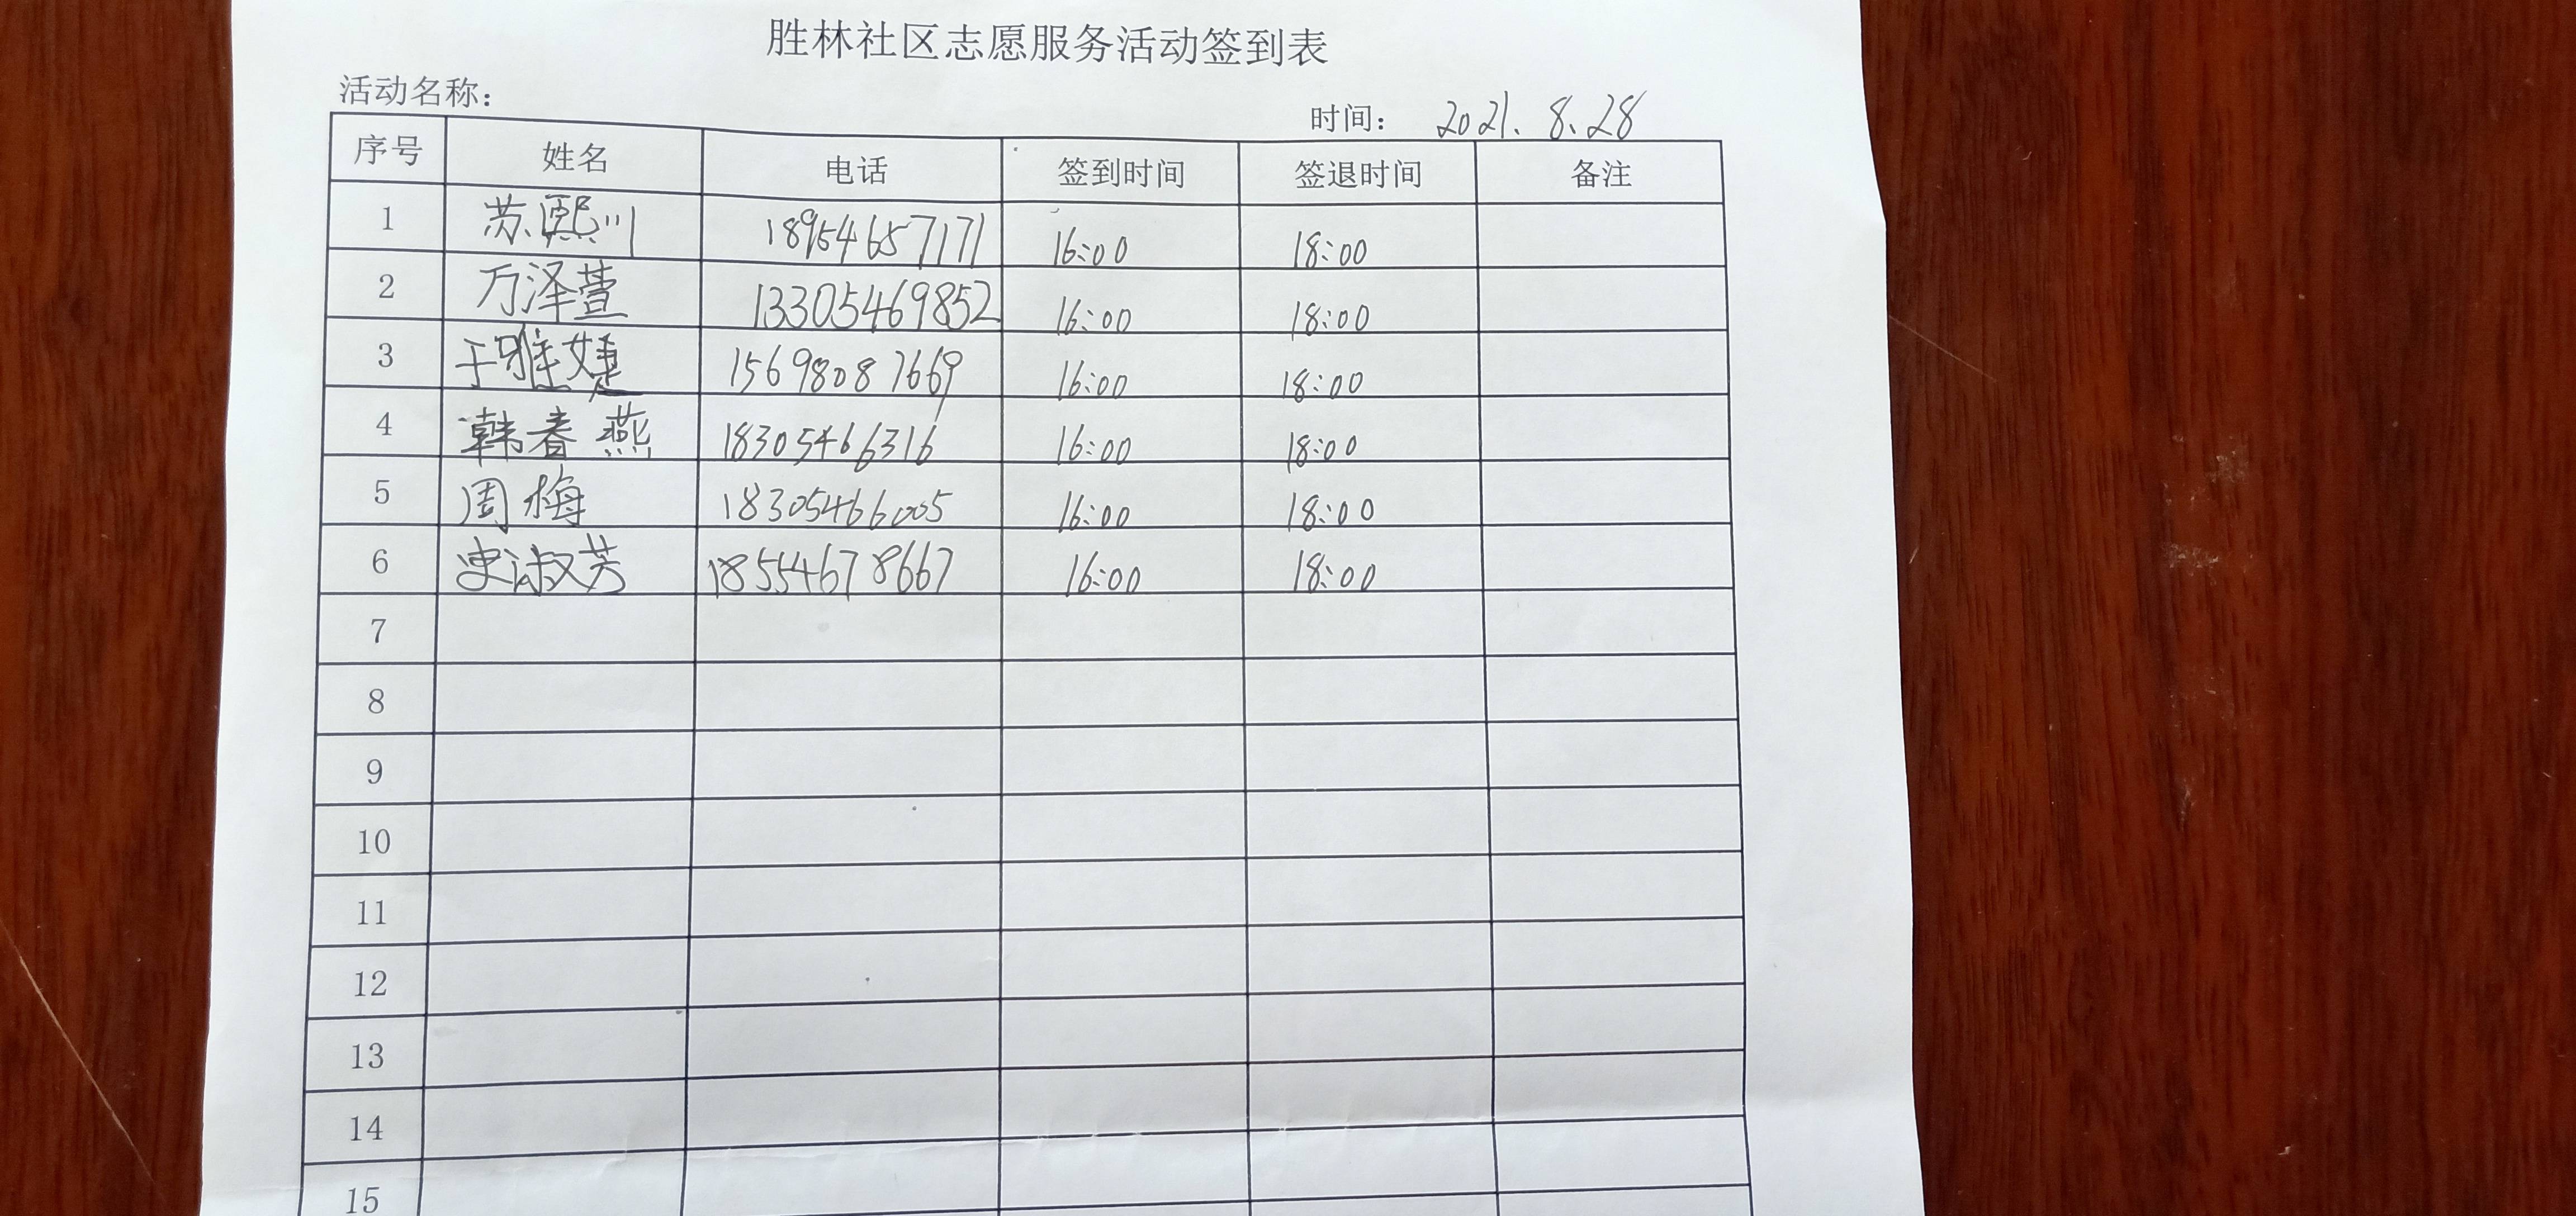 胜林社区志愿服务活动签到表
活动名称：
时间： 2021.8.28
序号 姓名 电话 签到时间 签退时间 备注
1 苏熙川 18954657171 16:00 18:00
2 万泽萱 13305469852 16:00 18:00
3 于雅婕 15698087669 16:00 18:00
4 韩春燕 18305466316 16:00 18:00
5 周梅 18305466005 16:00 18:00
6 史淑芳 18554678667 16:00 18:00
7
8
9
10
11
12
13
14
15